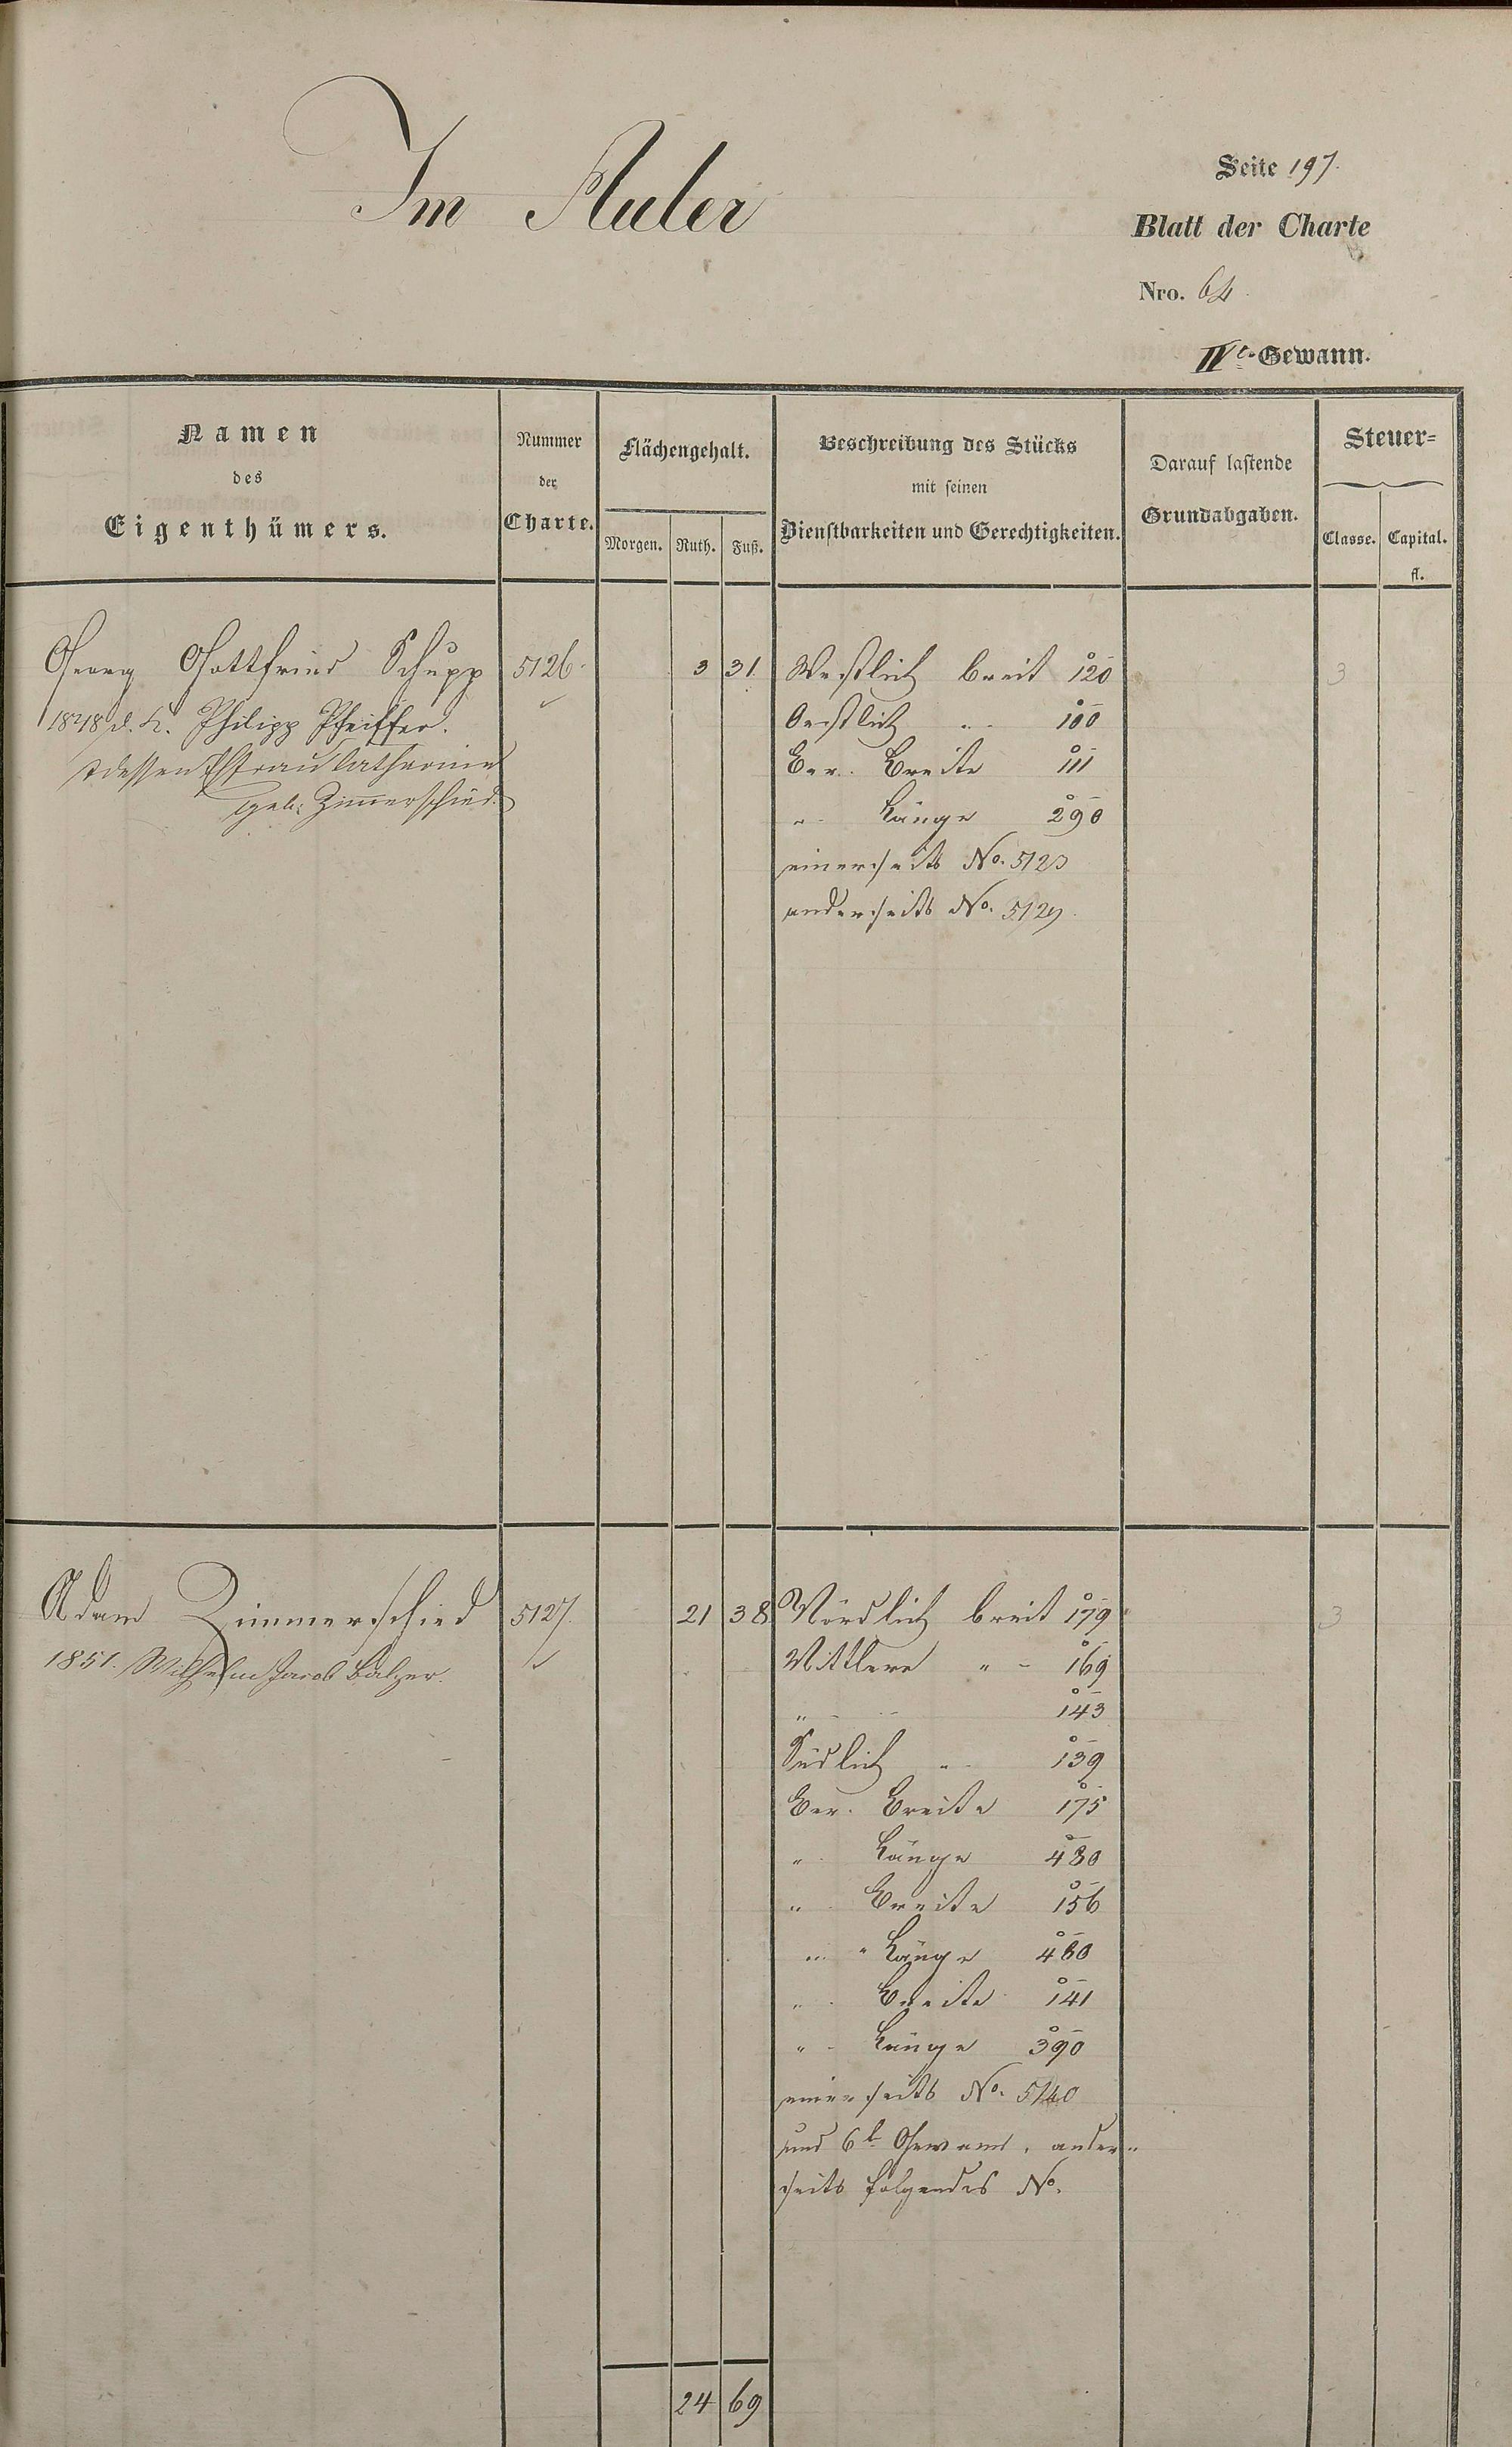 Im Auler
Seite 197.
Blatt der Charte
Nro. 64.
IVt. Gewann.
Namen
des
Eigenthümers.
Nummer
der
Charte.
Flächengehalt.
Morgen. Ruth. Fuß.
Beschreibung des Stücks
mit seinen
Dienstbarkeiten und Gerechtigkeiten.
Darauf lastende
Grundabgaben.
Steuer=
Classe. Capital.
fl.
Georg Gottfried Schupp 5126. 3 31. Westlich breit 120 3
1848 d. K. Philipp Pfeiffer. Oestlich " 100
dessen Ehefrau Catharine Ber. Breite 111
geb: Zimmerschied. " Länge 290
einerseits No. 5123
anderseits No. 5129.
Adam Zimmerschied 5127. 21 38. Nördlich breit 179 3
1851. Wilhelm Jacob Balzer. Mittlere " 169
" 143
Südlich " 139
Ber. Breite 175
" Länge 480
" Breite 156
" Länge 480
" Breite 141
" Länge 390
einerseits No. 5140
und 6t. Gewann, ander=
seits folgendes No.
24 69